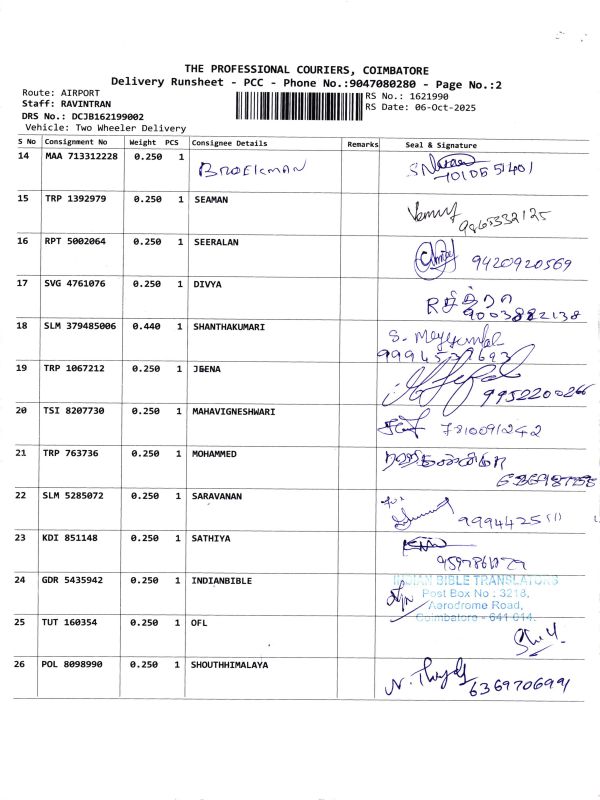 THE PROFESSIONAL COURIERS, COIMBATORE
Delivery Runsheet - PCC - Phone No.:9047080280 - Page No.:2
Route: AIRPORT
Staff: RAVINTRAN
DRS No.: DCJB162199002
Vehicle: Two Wheeler Delivery
RS No.: 1621990
RS Date: 06-Oct-2025
S No Consignment No Weight PCS Consignee Details Remarks Seal & Signature
14 MAA 713312228 0.250 1 BROEKMAN
15 TRP 1392979 0.250 1 SEAMAN 9865332125
16 RPT 5002064 0.250 1 SEERALAN 9420920569
17 SVG 4761076 0.250 1 DIVYA 9003882138
18 SLM 379485006 0.440 1 SHANTHAKUMARI
19 TRP 1067212 0.250 1 JEENA 9952200266
20 TSI 8207730 0.250 1 MAHAVIGNESHWARI 7810091242
21 TRP 763736 0.250 1 MOHAMMED
22 SLM 5285072 0.250 1 SARAVANAN for
23 KDI 851148 0.250 1 SATHIYA
24 GDR 5435942 0.250 1 INDIANBIBLE INDIAN BIBLE TRANSLATORS
Post Box No : 3218,
Aerodrome Road,
Coimbatore - 641 014.
25 TUT 160354 0.250 1 OFL
26 POL 8098990 0.250 1 SHOUTHHIMALAYA